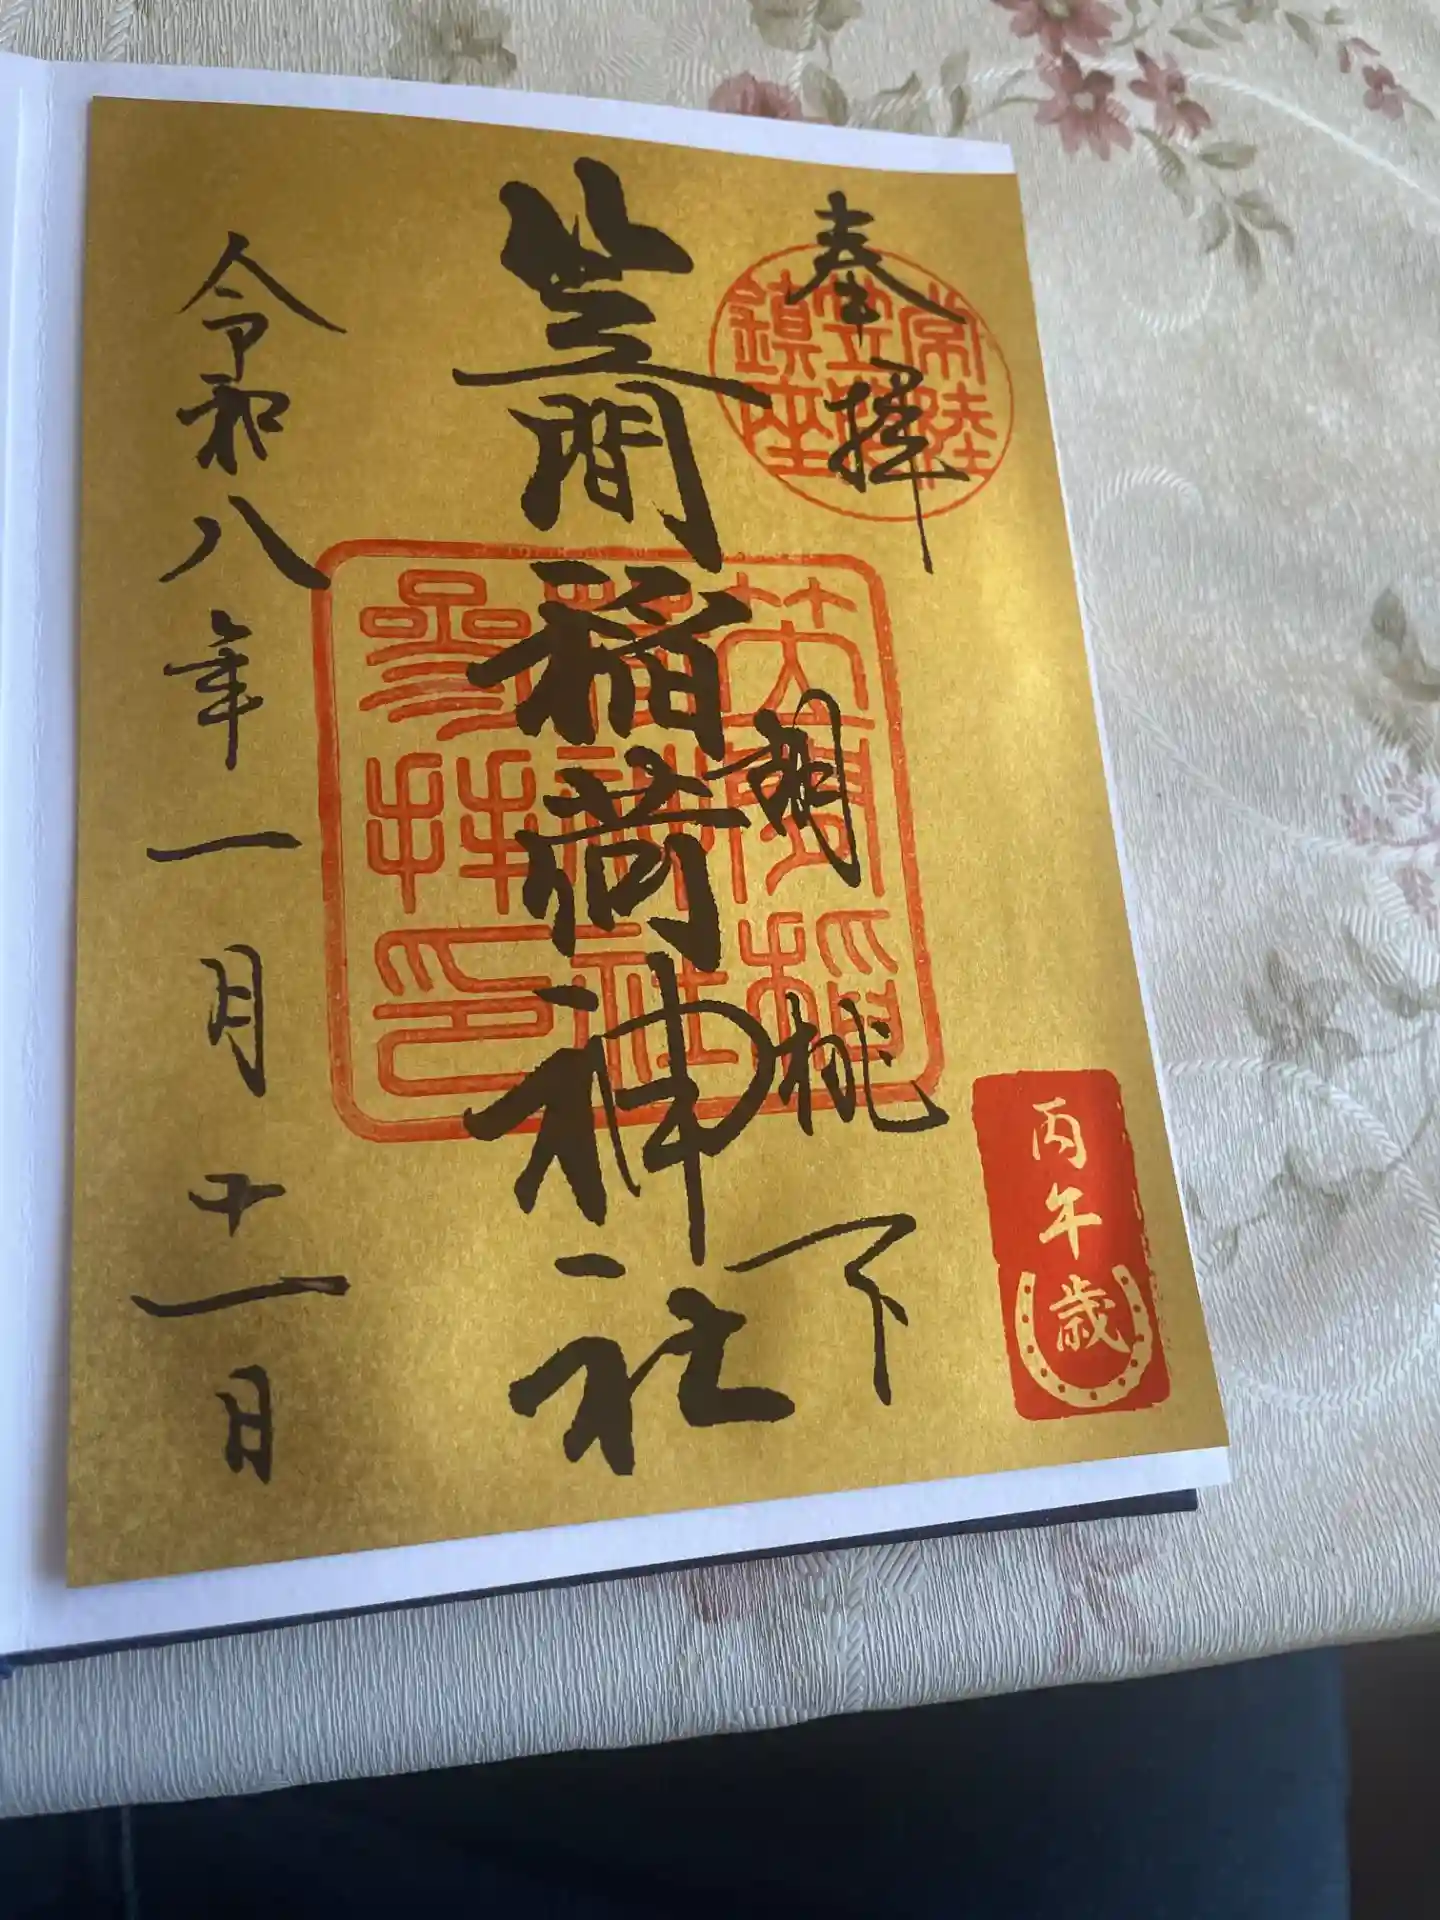 奉拝
常陸
笠間
鎮座
胡桃下
丙午歳
笠間稲荷神社
笠間稲
荷神社
參拜印
令和八年一月十一日